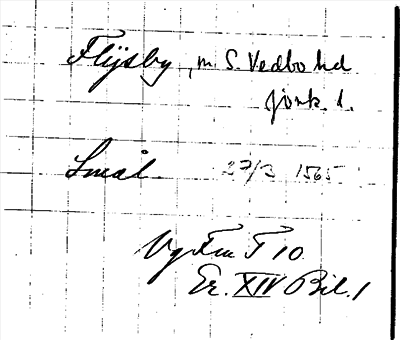 Flijsby, m S. Vedbo hd
jönk. l.
Smål. 27/3 1565
Vg Fm F 10
Er. XIV Bil. 1